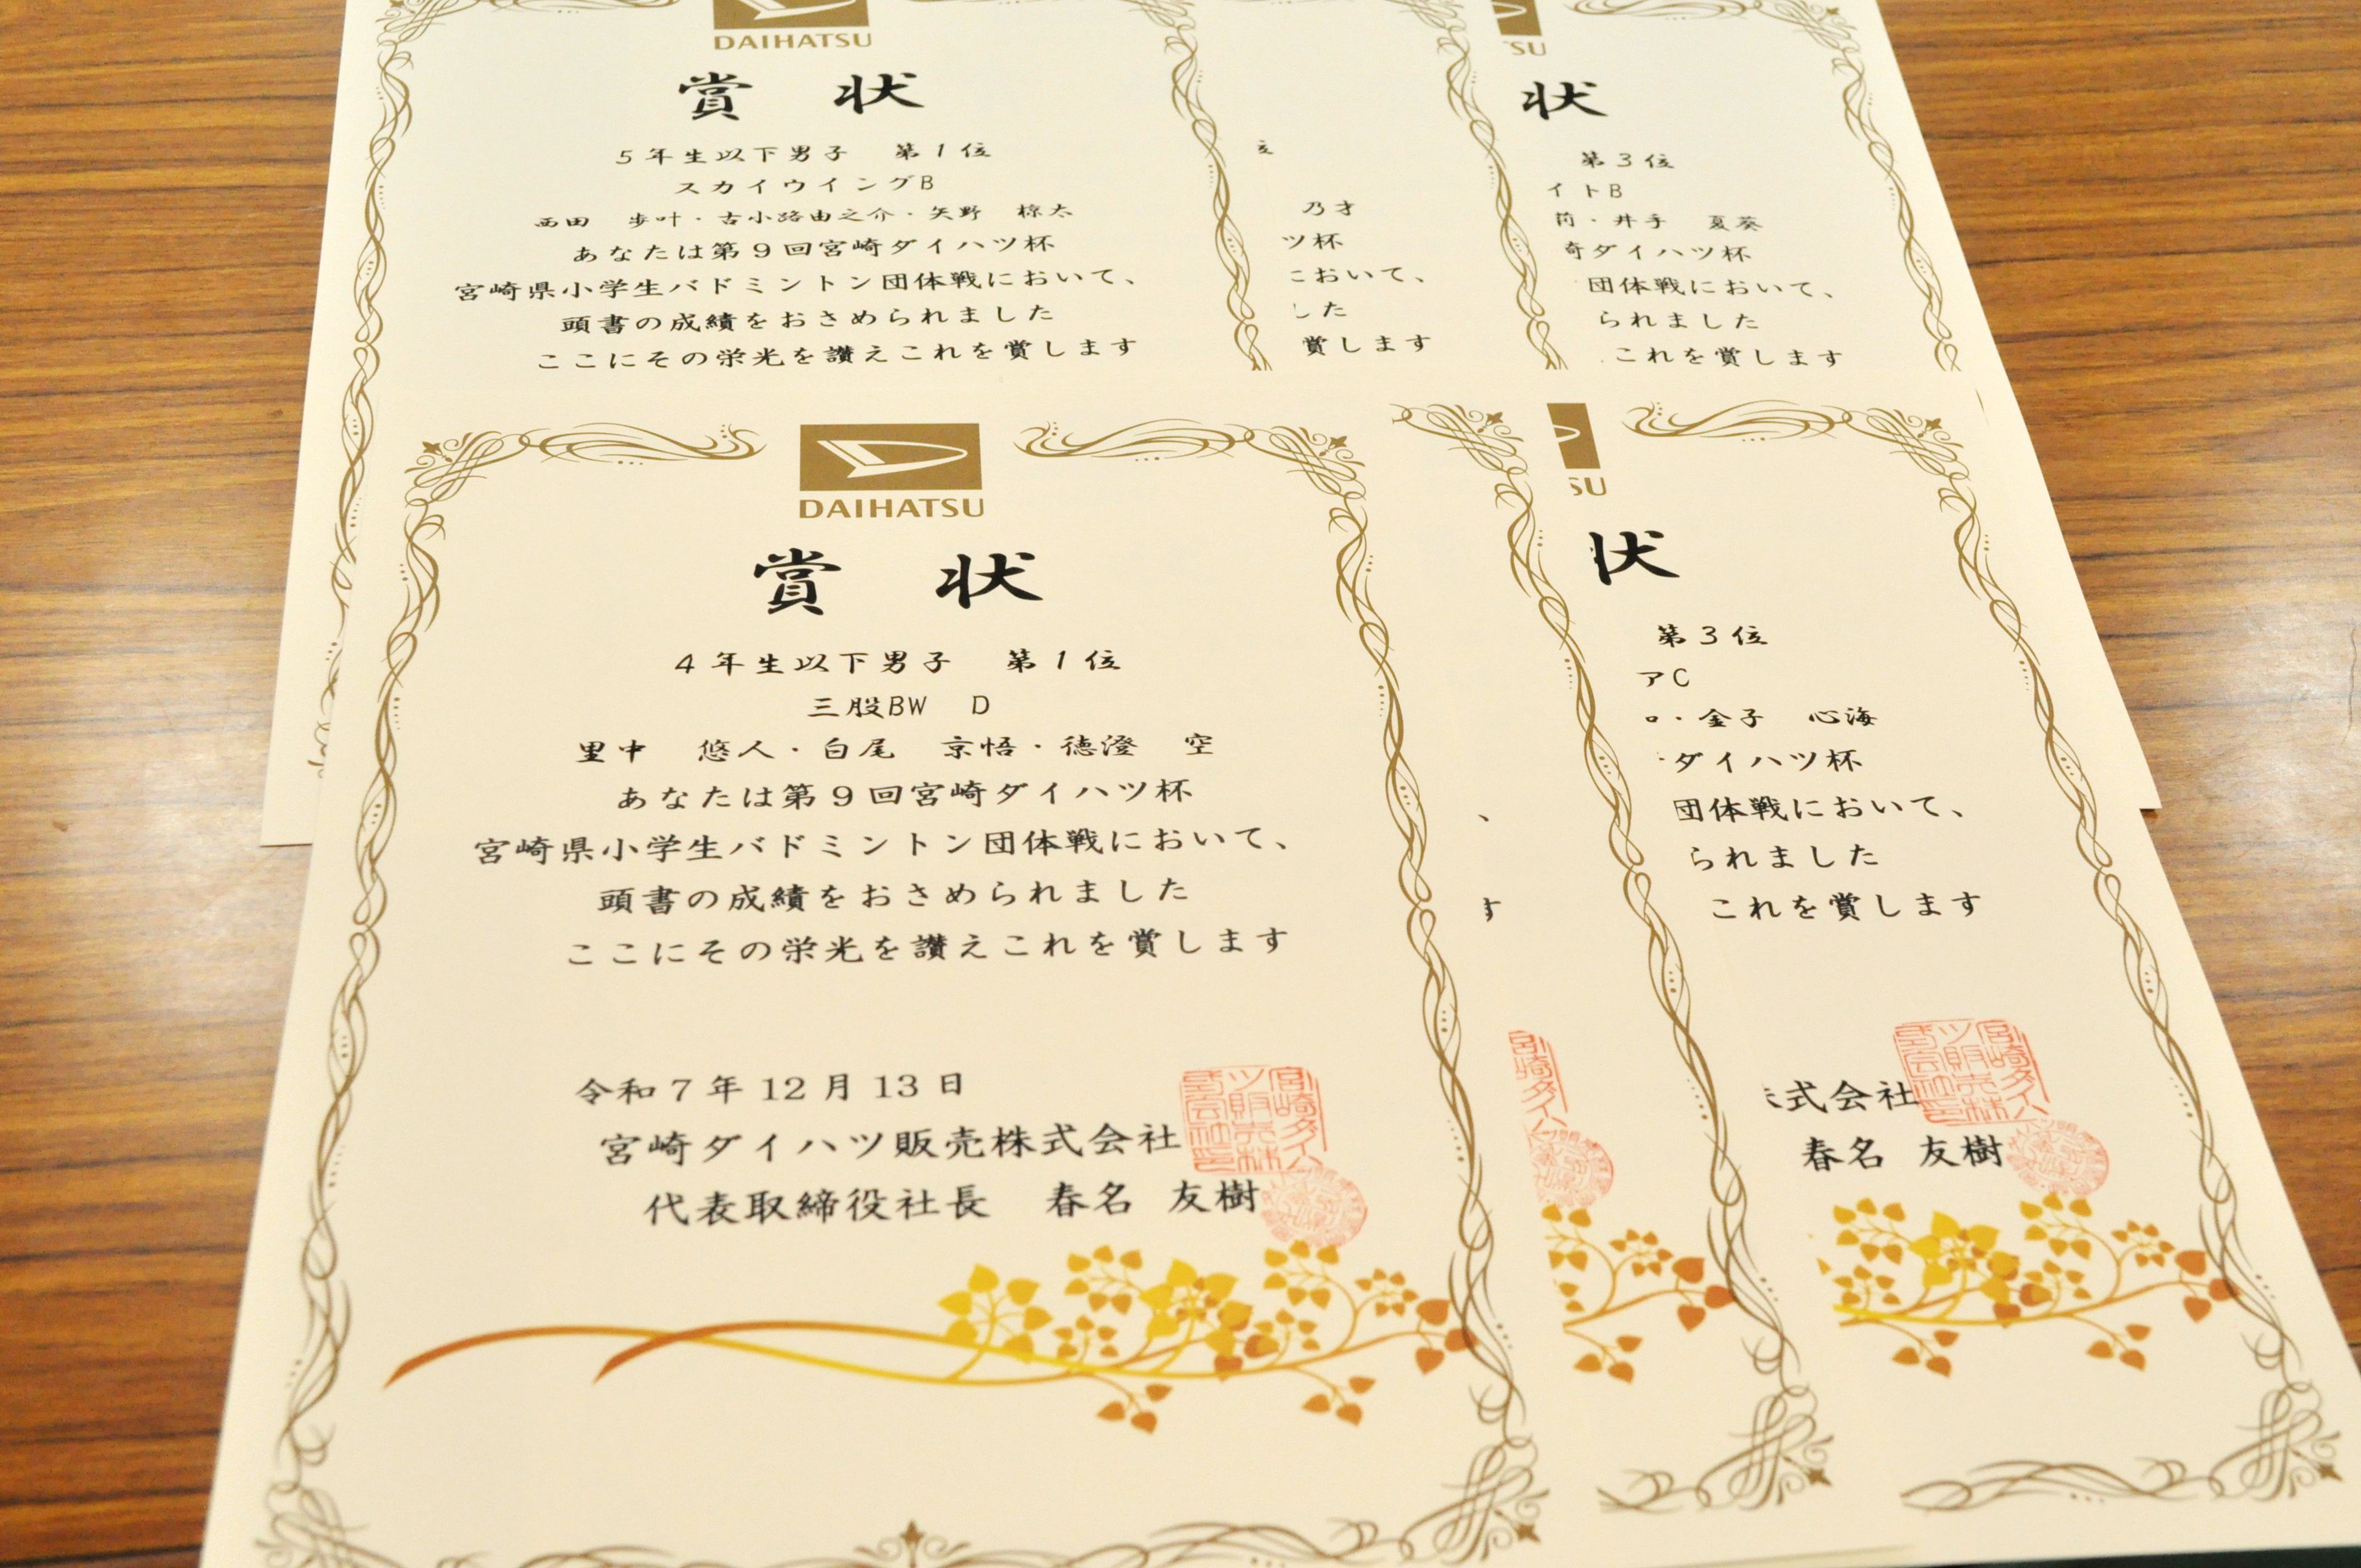 DAIHATSU
賞 状
5年生以下男子 第1位
スカイウイングB
西田 歩叶・古小路由之介・矢野 椋太
あなたは第9回宮崎ダイハツ杯
宮崎県小学生バドミントン団体戦において、
頭書の成績をおさめられました
ここにその栄光を讃えこれを賞します
乃才
ツ杯
において、
した
賞します
SU
状
第3位
イトB
・井手 夏葵
奇ダイハツ杯
団体戦において、
られました
これを賞します
DAIHATSU
賞 状
4年生以下男子 第1位
三股BW D
里中 悠人・白尾 京悟・徳澄 空
あなたは第9回宮崎ダイハツ杯
宮崎県小学生バドミントン団体戦において、
頭書の成績をおさめられました
ここにその栄光を讃えこれを賞します
令和7年12月13日
宮崎ダイハツ販売株式会社
代表取締役社長 春名 友樹
、
す
SU
状
第3位
アC
・金子 心海
ダイハツ杯
団体戦において、
られました
これを賞します
式会社
春名 友樹